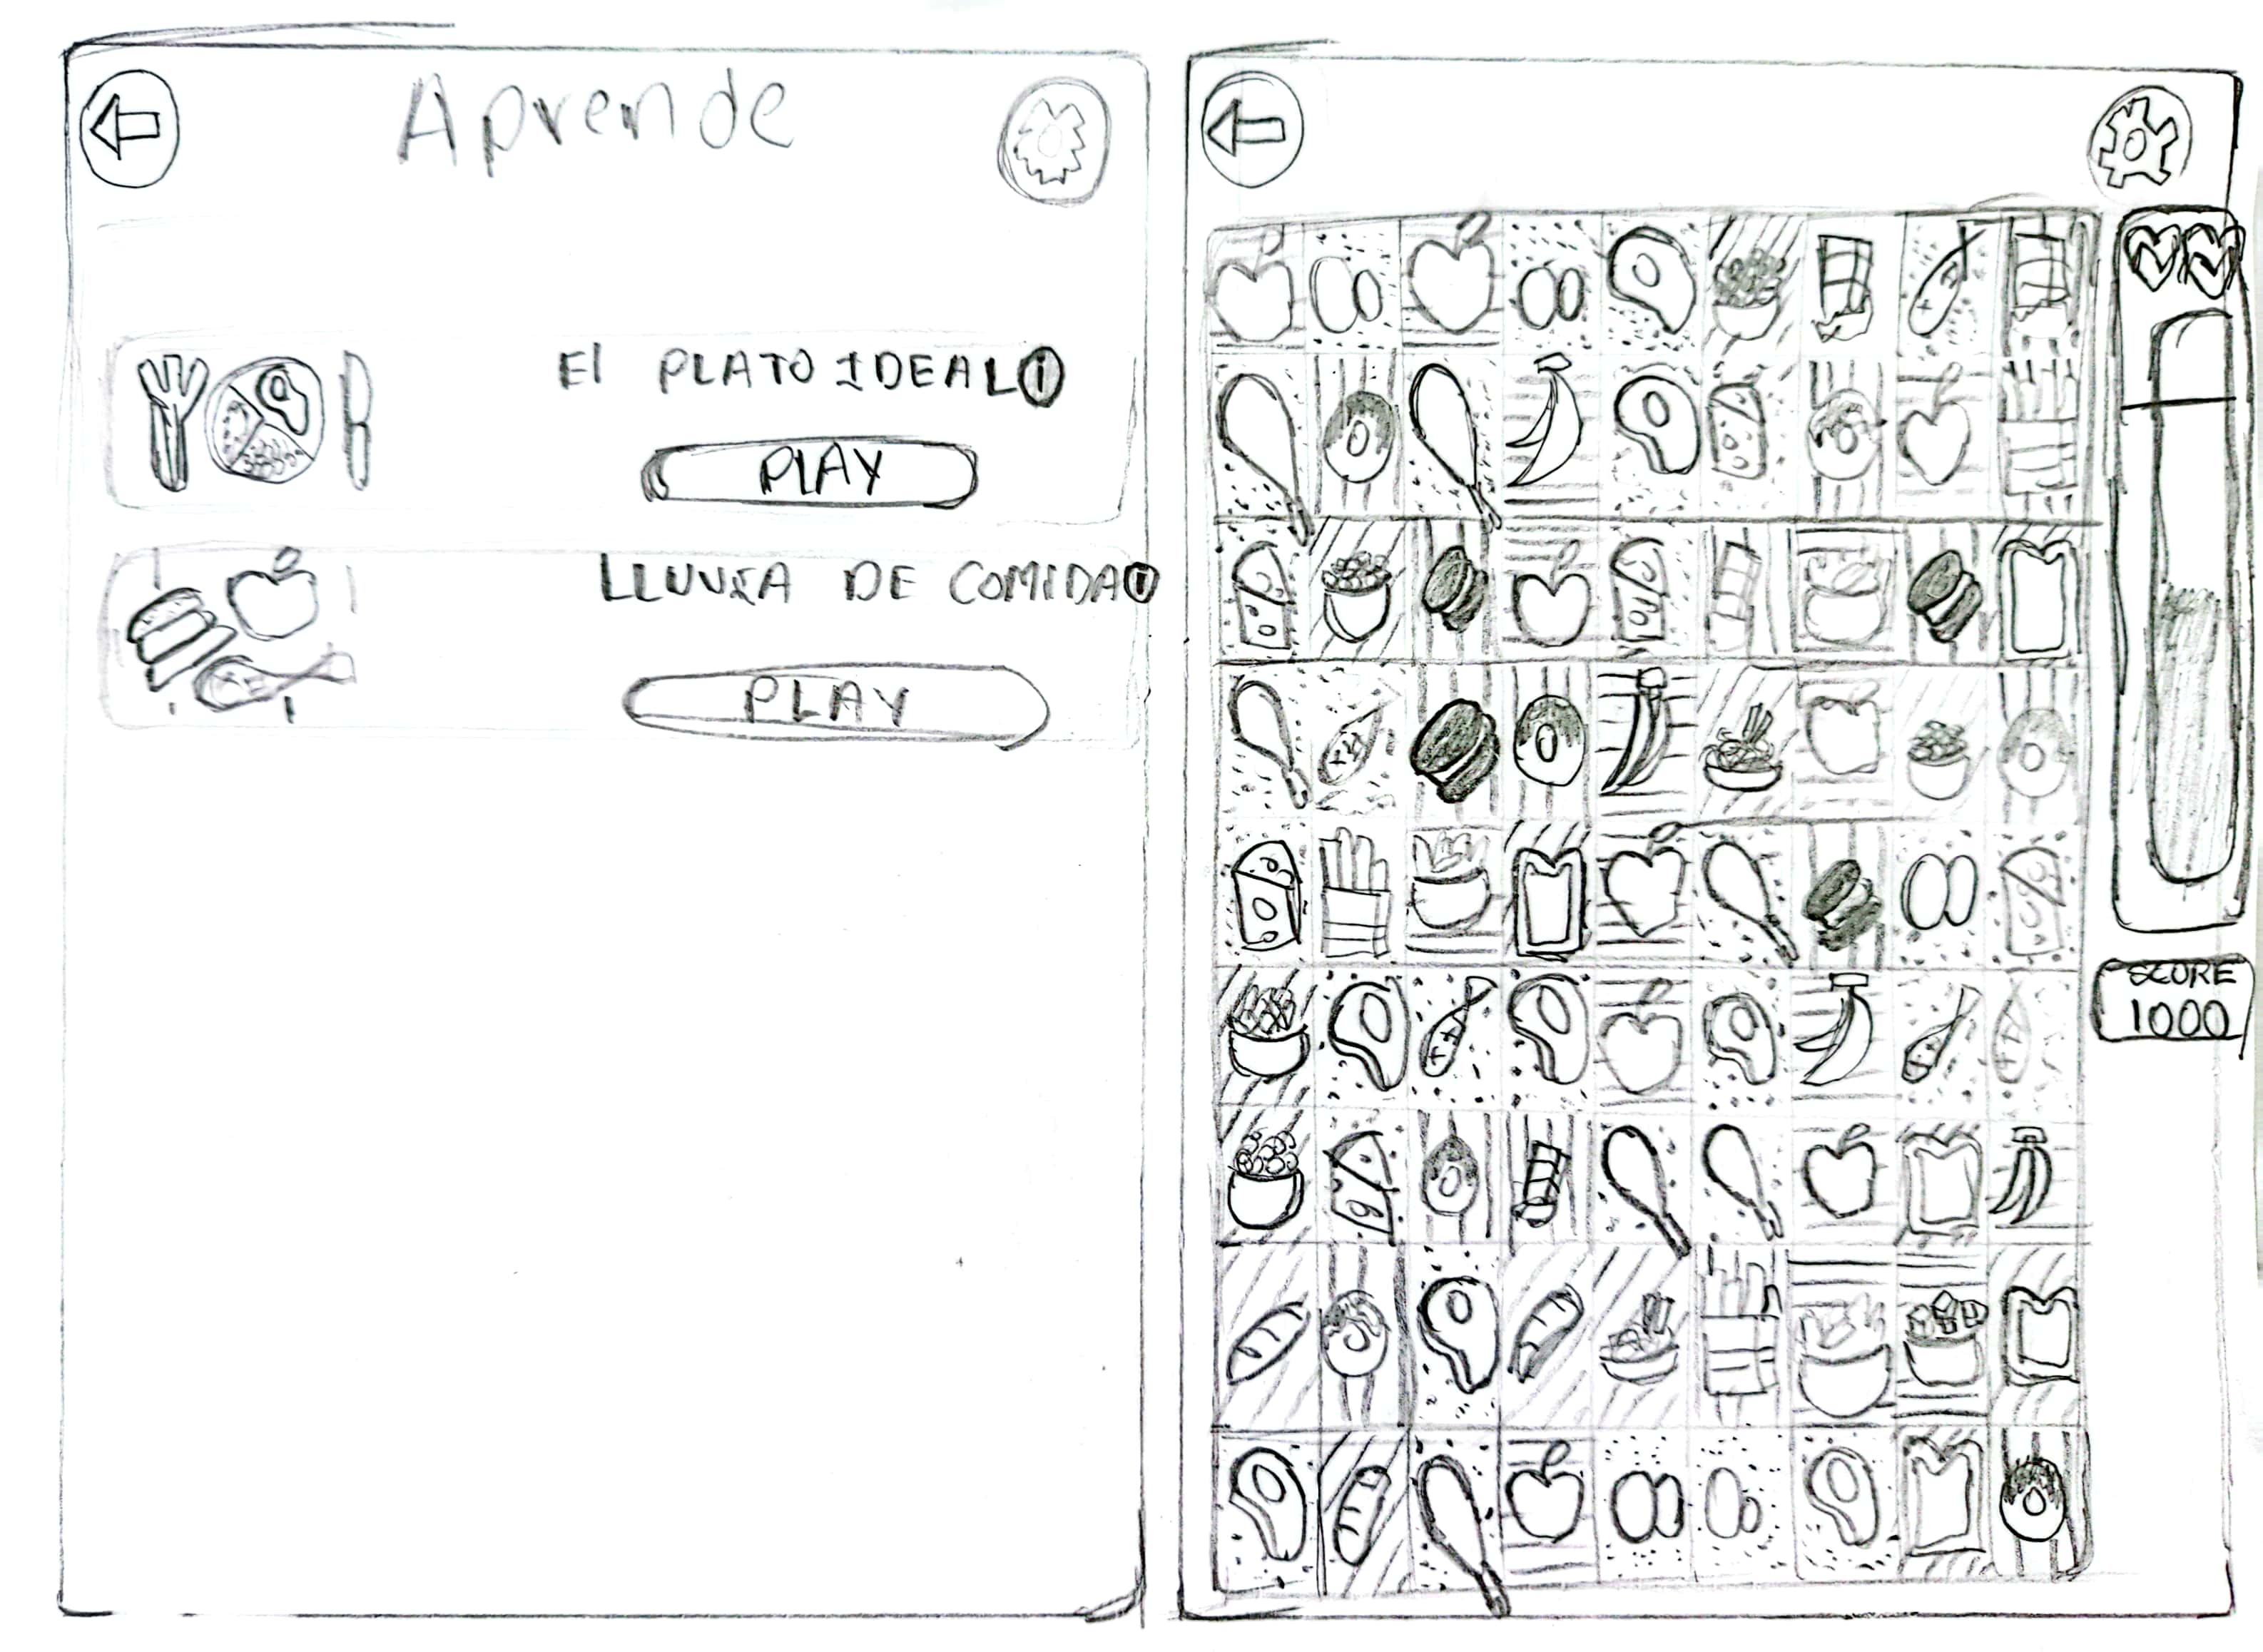 Aprende
El PLATO IDEAL i
PLAY
LLUVIA DE COMIDA i
PLAY
SCORE
1000